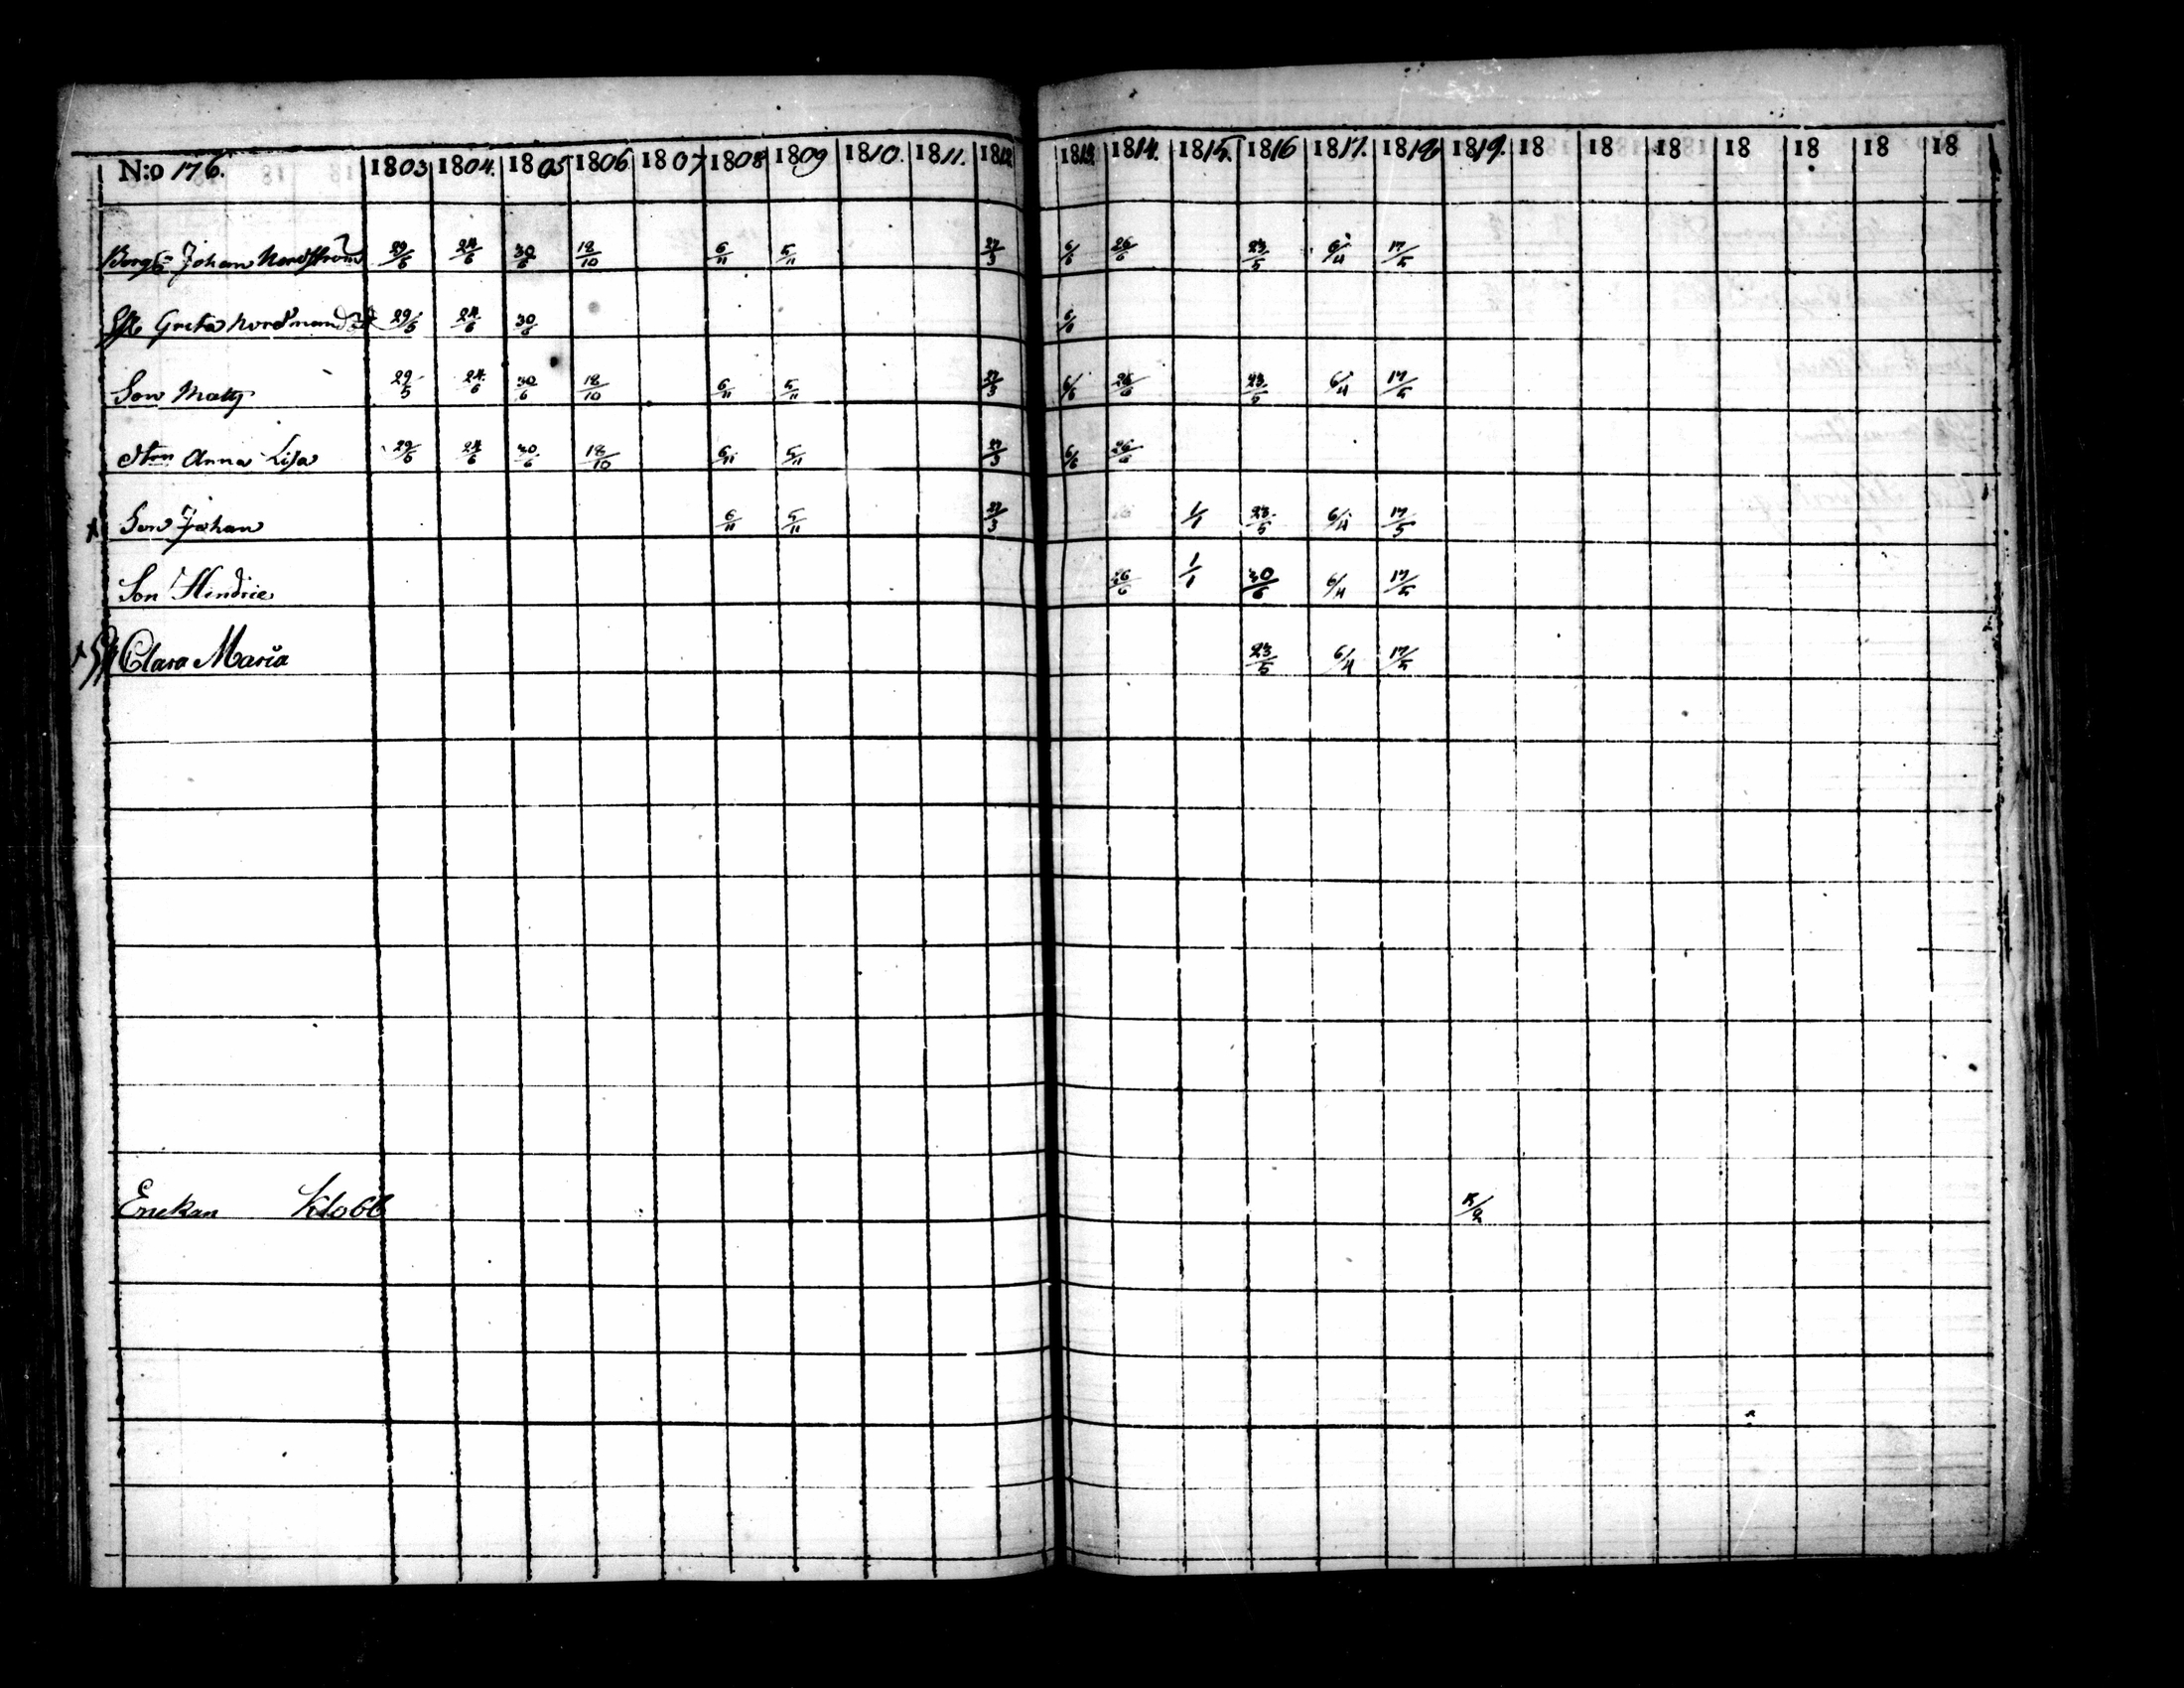 N:o 176. 1803 1804. 1805 1806 1807 1808 1809 1810. 1811. 1812. 1813. 1814. 1815. 1816 1817. 1818 1819. 18 18 18 18 18 18 18
Johan Nordström 29/5 24/6 30/6 18/10 6/11 5/11 27/3 6/6 26/6 23/5 6/4 17/5
Greta 29/5 24/6 30/6 6/6
Son Matts 29/5 24/6 30/6 18/10 6/11 5/11 27/3 6/6 26/6 23/5 6/4 17/5
Anna Lisa 29/5 24/6 30/6 18/10 6/11 5/11 27/3 6/6 26/6
Son Johan 6/11 5/11 27/3 1/1 23/5 6/4 17/5
Son Hindric 26/6 1/1 30/6 6/4 17/5
Clara Maria 23/5 6/4 17/5
Enekan Klobb